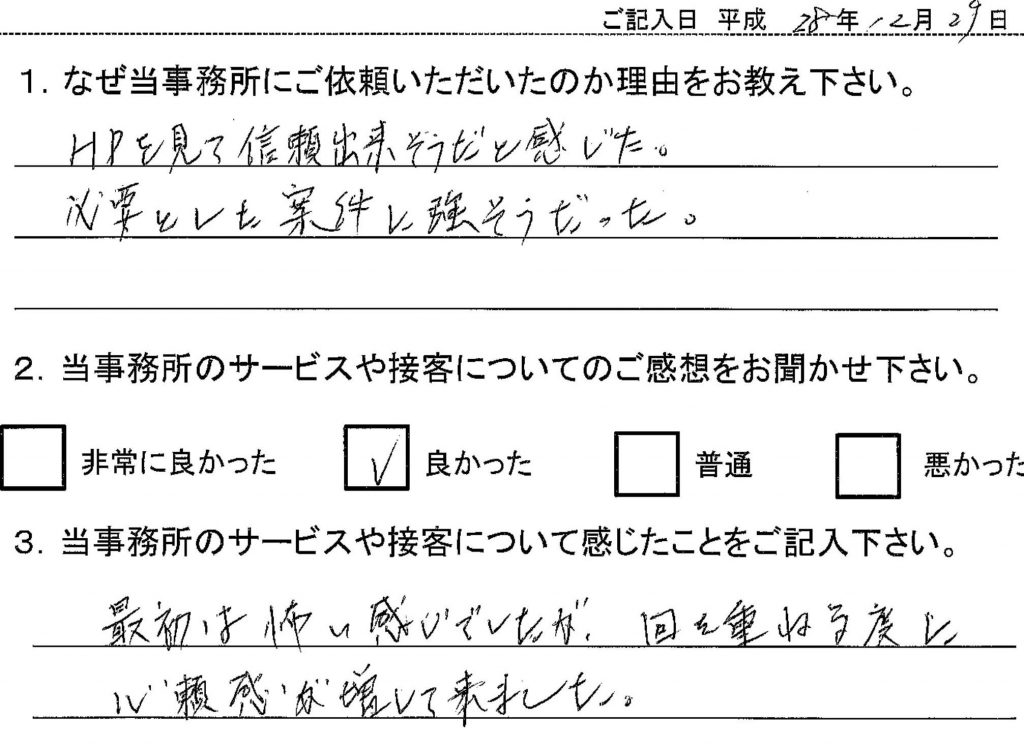 ご記入日 平成 28年 12月 29日
1. なぜ当事務所にご依頼いただいたのか理由をお教え下さい。
HPを見て信頼出来そうだと感じた。
必要とした案件に強そうだった。
2. 当事務所のサービスや接客についてのご感想をお聞かせ下さい。
非常に良かった 良かった 普通 悪かった
3. 当事務所のサービスや接客について感じたことをご記入下さい。
最初は怖い感じでしたが、回を重ねる度に
心頼感が増して来ました。